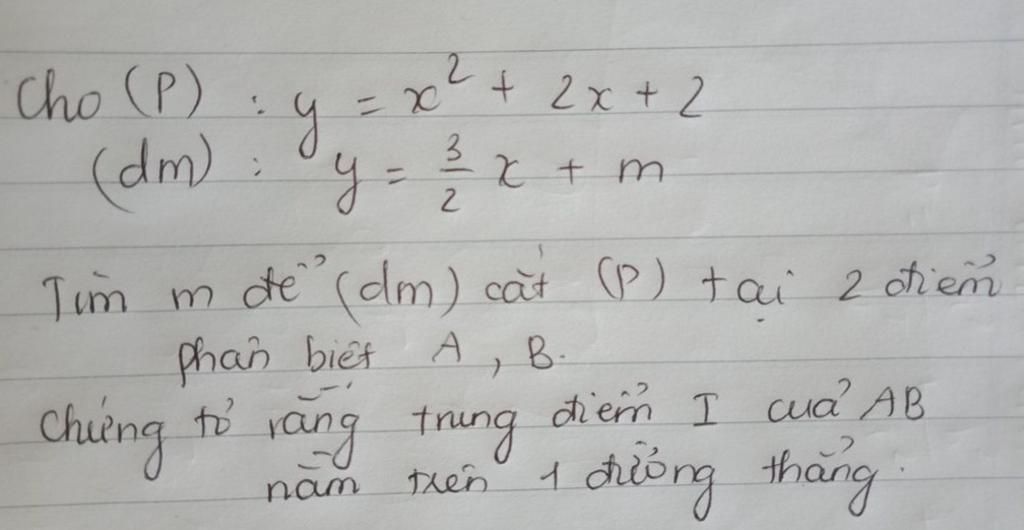 Cho (P) : y = x² + 2x + 2
(dm) : y = 3/2 x + m
Tìm m để (dm) cắt (P) tại 2 điểm
phân biệt A, B.
Chứng tỏ rằng trung điểm I của AB
nằm trên 1 đường thẳng.